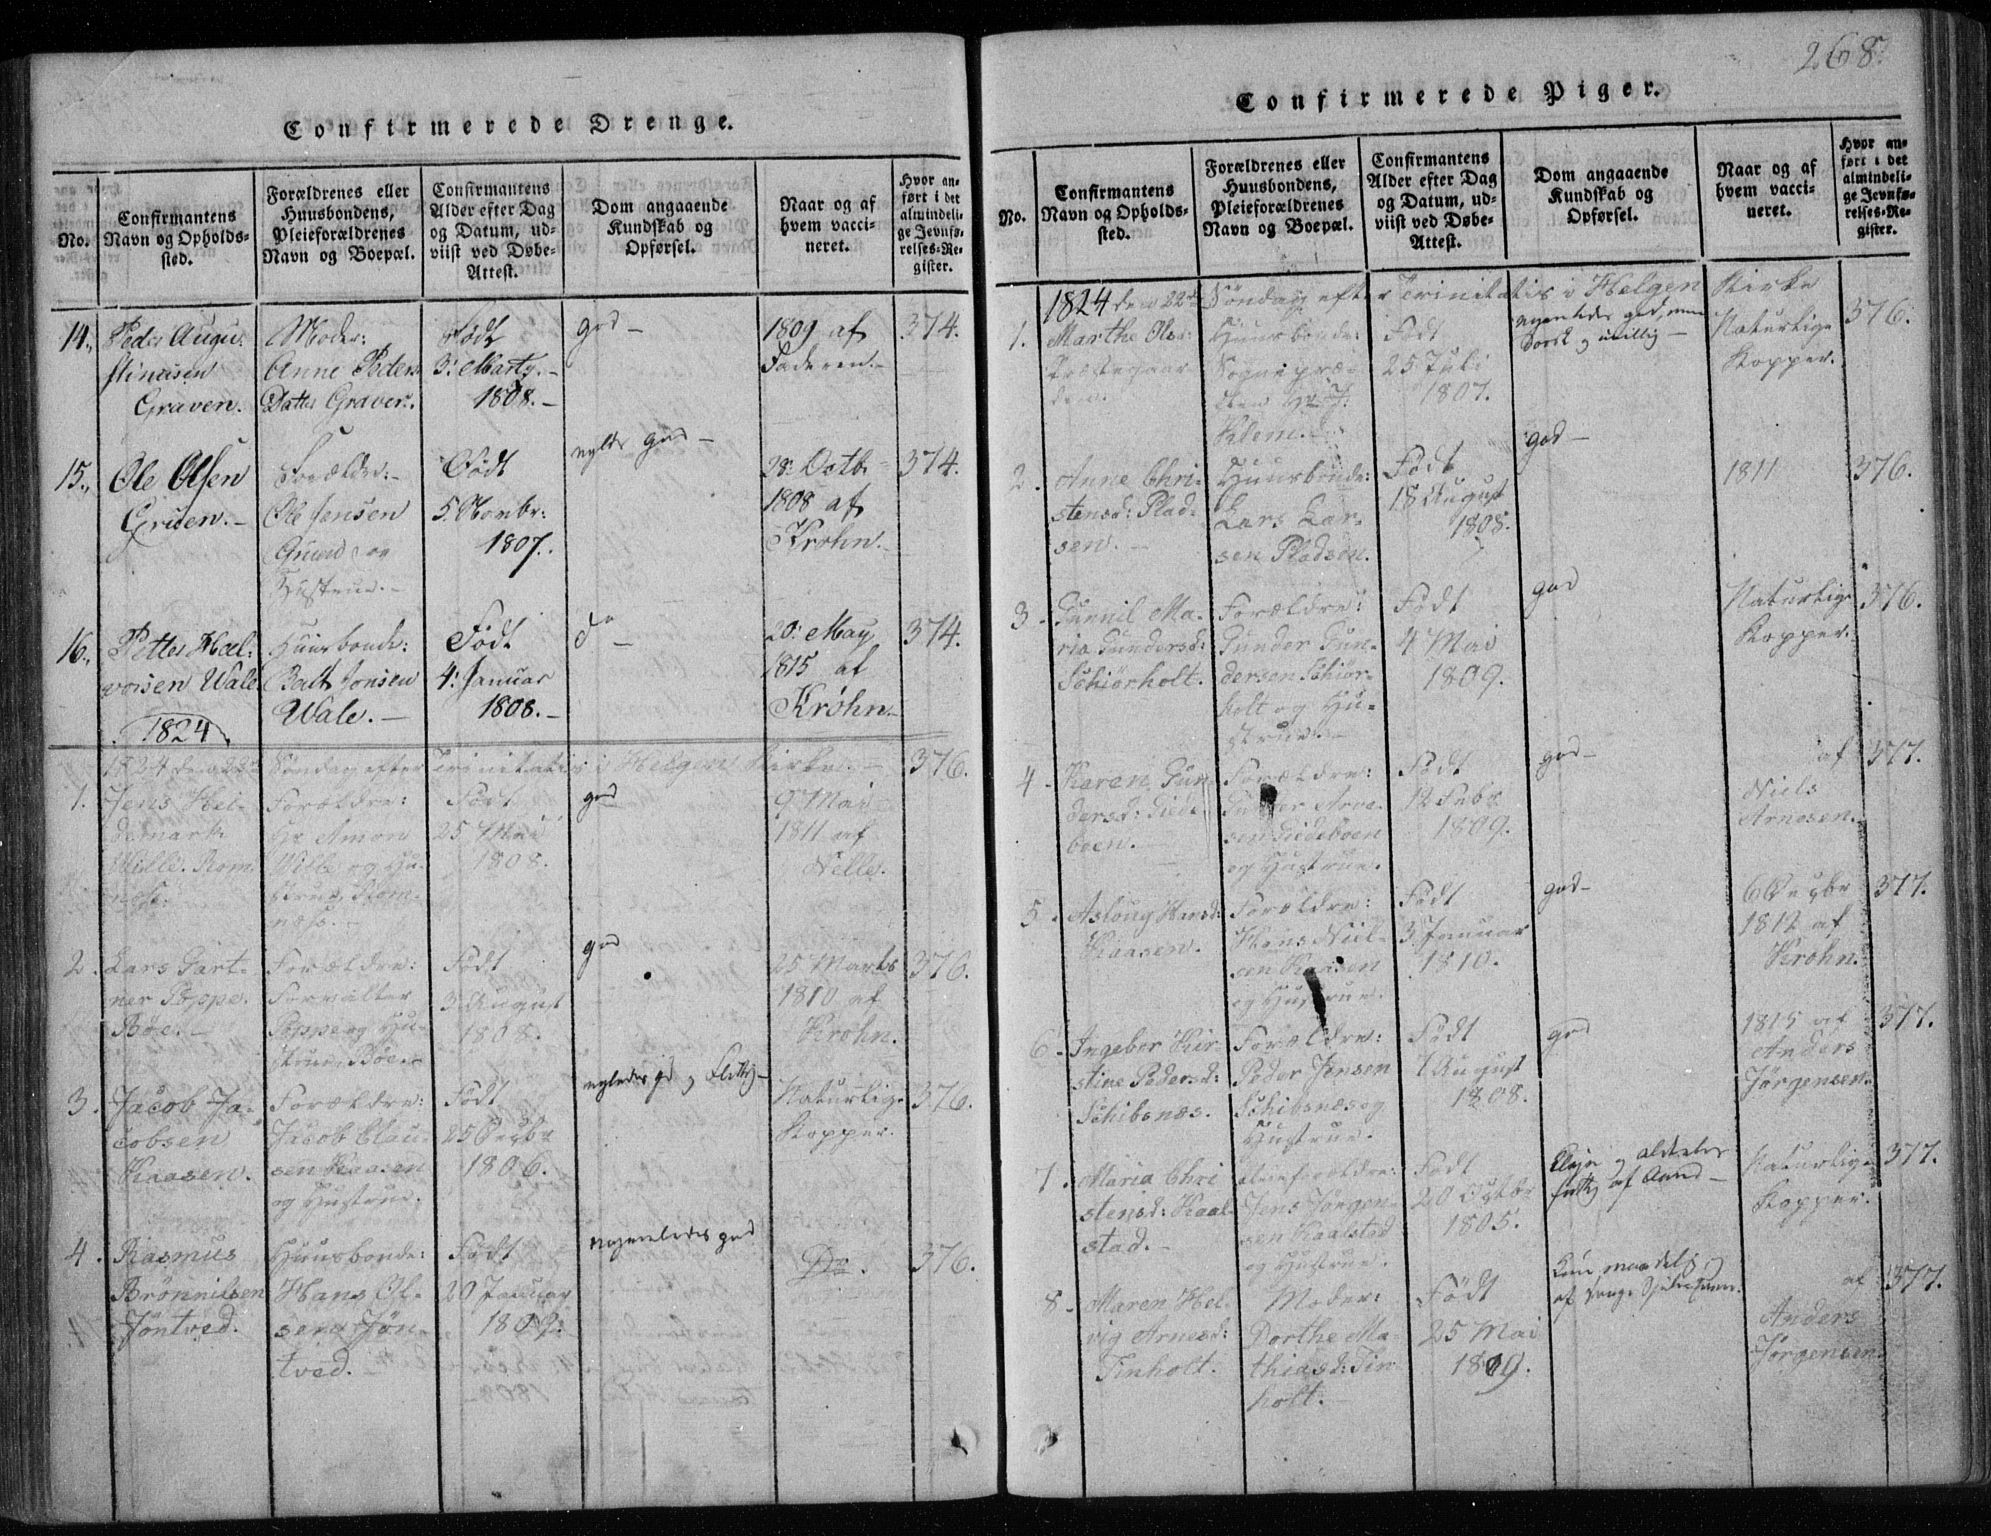 268.
Confirmerede Drenge.
No.
Confirmantens
Navn og Opholds-
sted.
Forældrenes eller
Huusbondens,
Pleieforældrenes
Navn og Boepæl.
Confirmantens
Alder efter Dag
og Datum, ud-
viist ved Døbe-
Attest.
Dom angaaende
Kundskab og
Opførsel.
Naar og af
hvem vacci-
neret.
Hvor an-
ført i det
almindeli-
ge Jevnfø-
relses-Re-
gister.
14.,
Peder Augu-
stinusen
Graven.
Moder:
Anne Peders
Datter Graver.
Født
3: Marty.-
1808.-
god-
1809 af
Faderen.-
374.
15.,
Ole Olsen
Gruen.-
Forældre:-
Ole Jensen
og
Hustrue.-
Født
5. Novbr:
1807.
god-
28: Octb:
1808 af
Krohn.-
374.
16.,
Petter Hal-
vorsen Wale.
Huusbonde:
Balt Jonsen
Wale.-
Født
4: Januar
1808.-
do-
20: May
1815 af
Krøhn.-
374.
1824
1824 den 22de Søndag efter Trinitatis i Helgen Kirke.-
376.
1.
Jens Hei-
demark
Wille. Rom-
Forældre:
Hr Amon
Wille og Hu-
strue, Rom-
næss.-
Født
25 Mai
1808.
god
9 Mai
1811 af
2.
Lars Gart-
ner Poppe.
Bøe.-
Forældre:
Forvalter
Poppe og Hu-
strue. Bøe.-
Født
3 August
1808.
god
25 Marts
1810 af
Krohn.
376.
3.
Jacob Ja-
cobsen
Kaasen.
Forældre:
Jacob Clau-
sen Kaasen
og Hustrue.
Født
25 Decbr
1806.
og Flittig-
Naturlige
Kopper.
376.
4.
Rasmus
Brønnilsen
Jøntved.
Huusbonde:
Hans Ol-
sen Jøn-
tved.-
Født
20 Januar
1809.
nogenledes god
Do.
376.
Confirmerede Piger.
No.
Confirmantens
Navn og Opholds-
sted.
Forældrenes eller
Huusbondens,
Pleieforældrenes
Navn og Boepæl.
Confirmantens
Alder efter Dag
og Datum, ud-
viist ved Døbe-
Attest.
Dom angaaende
Kundskab og
Opførsel.
Naar og af
hvem vacci-
neret.
Hvor an-
ført i det
almindeli-
ge Jevnfø-
relses-Re-
gister.
1824 den 22de Søndag efter Trinitatis i Helgen Kirke
1.
Marthe Ols:
Præstegaar-
den.
Huusbonde:
Sognepræ-
sten Hr J:
Klem.-
Født
25 Juli
1807.
nogenledes god, men
Dorsk og uvillig-
Naturlige
Kopper.
376.
2.
Anne Chri-
stensd: Plad-
sen.-
Huusbonde:
Lars Lar-
sen Pladsen.
Født
18 August
1808.
god-
1811
376.
3.
Gunnil Ma-
ria Gundersd:
Schiørholt.
Forældre:
Gunder Gun-
dersen Schiør-
holt og Hu-
strue.-
Født
4 Mai
1809.
god
Naturlige
Kopper.
376.
4.
Karen Gun-
dersd: Giede-
boen.
Forældre:
Gunder Arne-
sen Giedeboen
og Hustrue.
Født
12 Febr
1809.
god-
af
Niels
Arnesen.
377.
5.
Asloug Hansd:
Kaasen.
Forældre:
Hans Niel-
sen Kaasen
og Hustrue.
Født
3 Januar
1810.
god-
6 Decbr
1812 af
Krohn.
377.
6.
Ingebor Kir-
stine Pedersd:
Schibsnæs.
Forældre:
Peder Jensen
Schibsnæs og
Hustrue.
Født
7 August
1808.
god
1815 af
Anders
Jørgensen.
377.
7.
Maria Chri
stensd: Kaal-
stad.-
Pleieforældre:
Jens Jørgen-
sen Kaalstad
og Hustrue.
Født
20 Octbr
1805.
og aldeles
fattig af Aand-
Naturlige
Kopper.
377.
8.
Maren Hel-
vig Arnesd:
Tinholt.
Moder:
Dorthe Ma-
thiasd: Tin-
holt.-
Født
25 Mai
1809.
af
Anders
Jørgensen.
377.